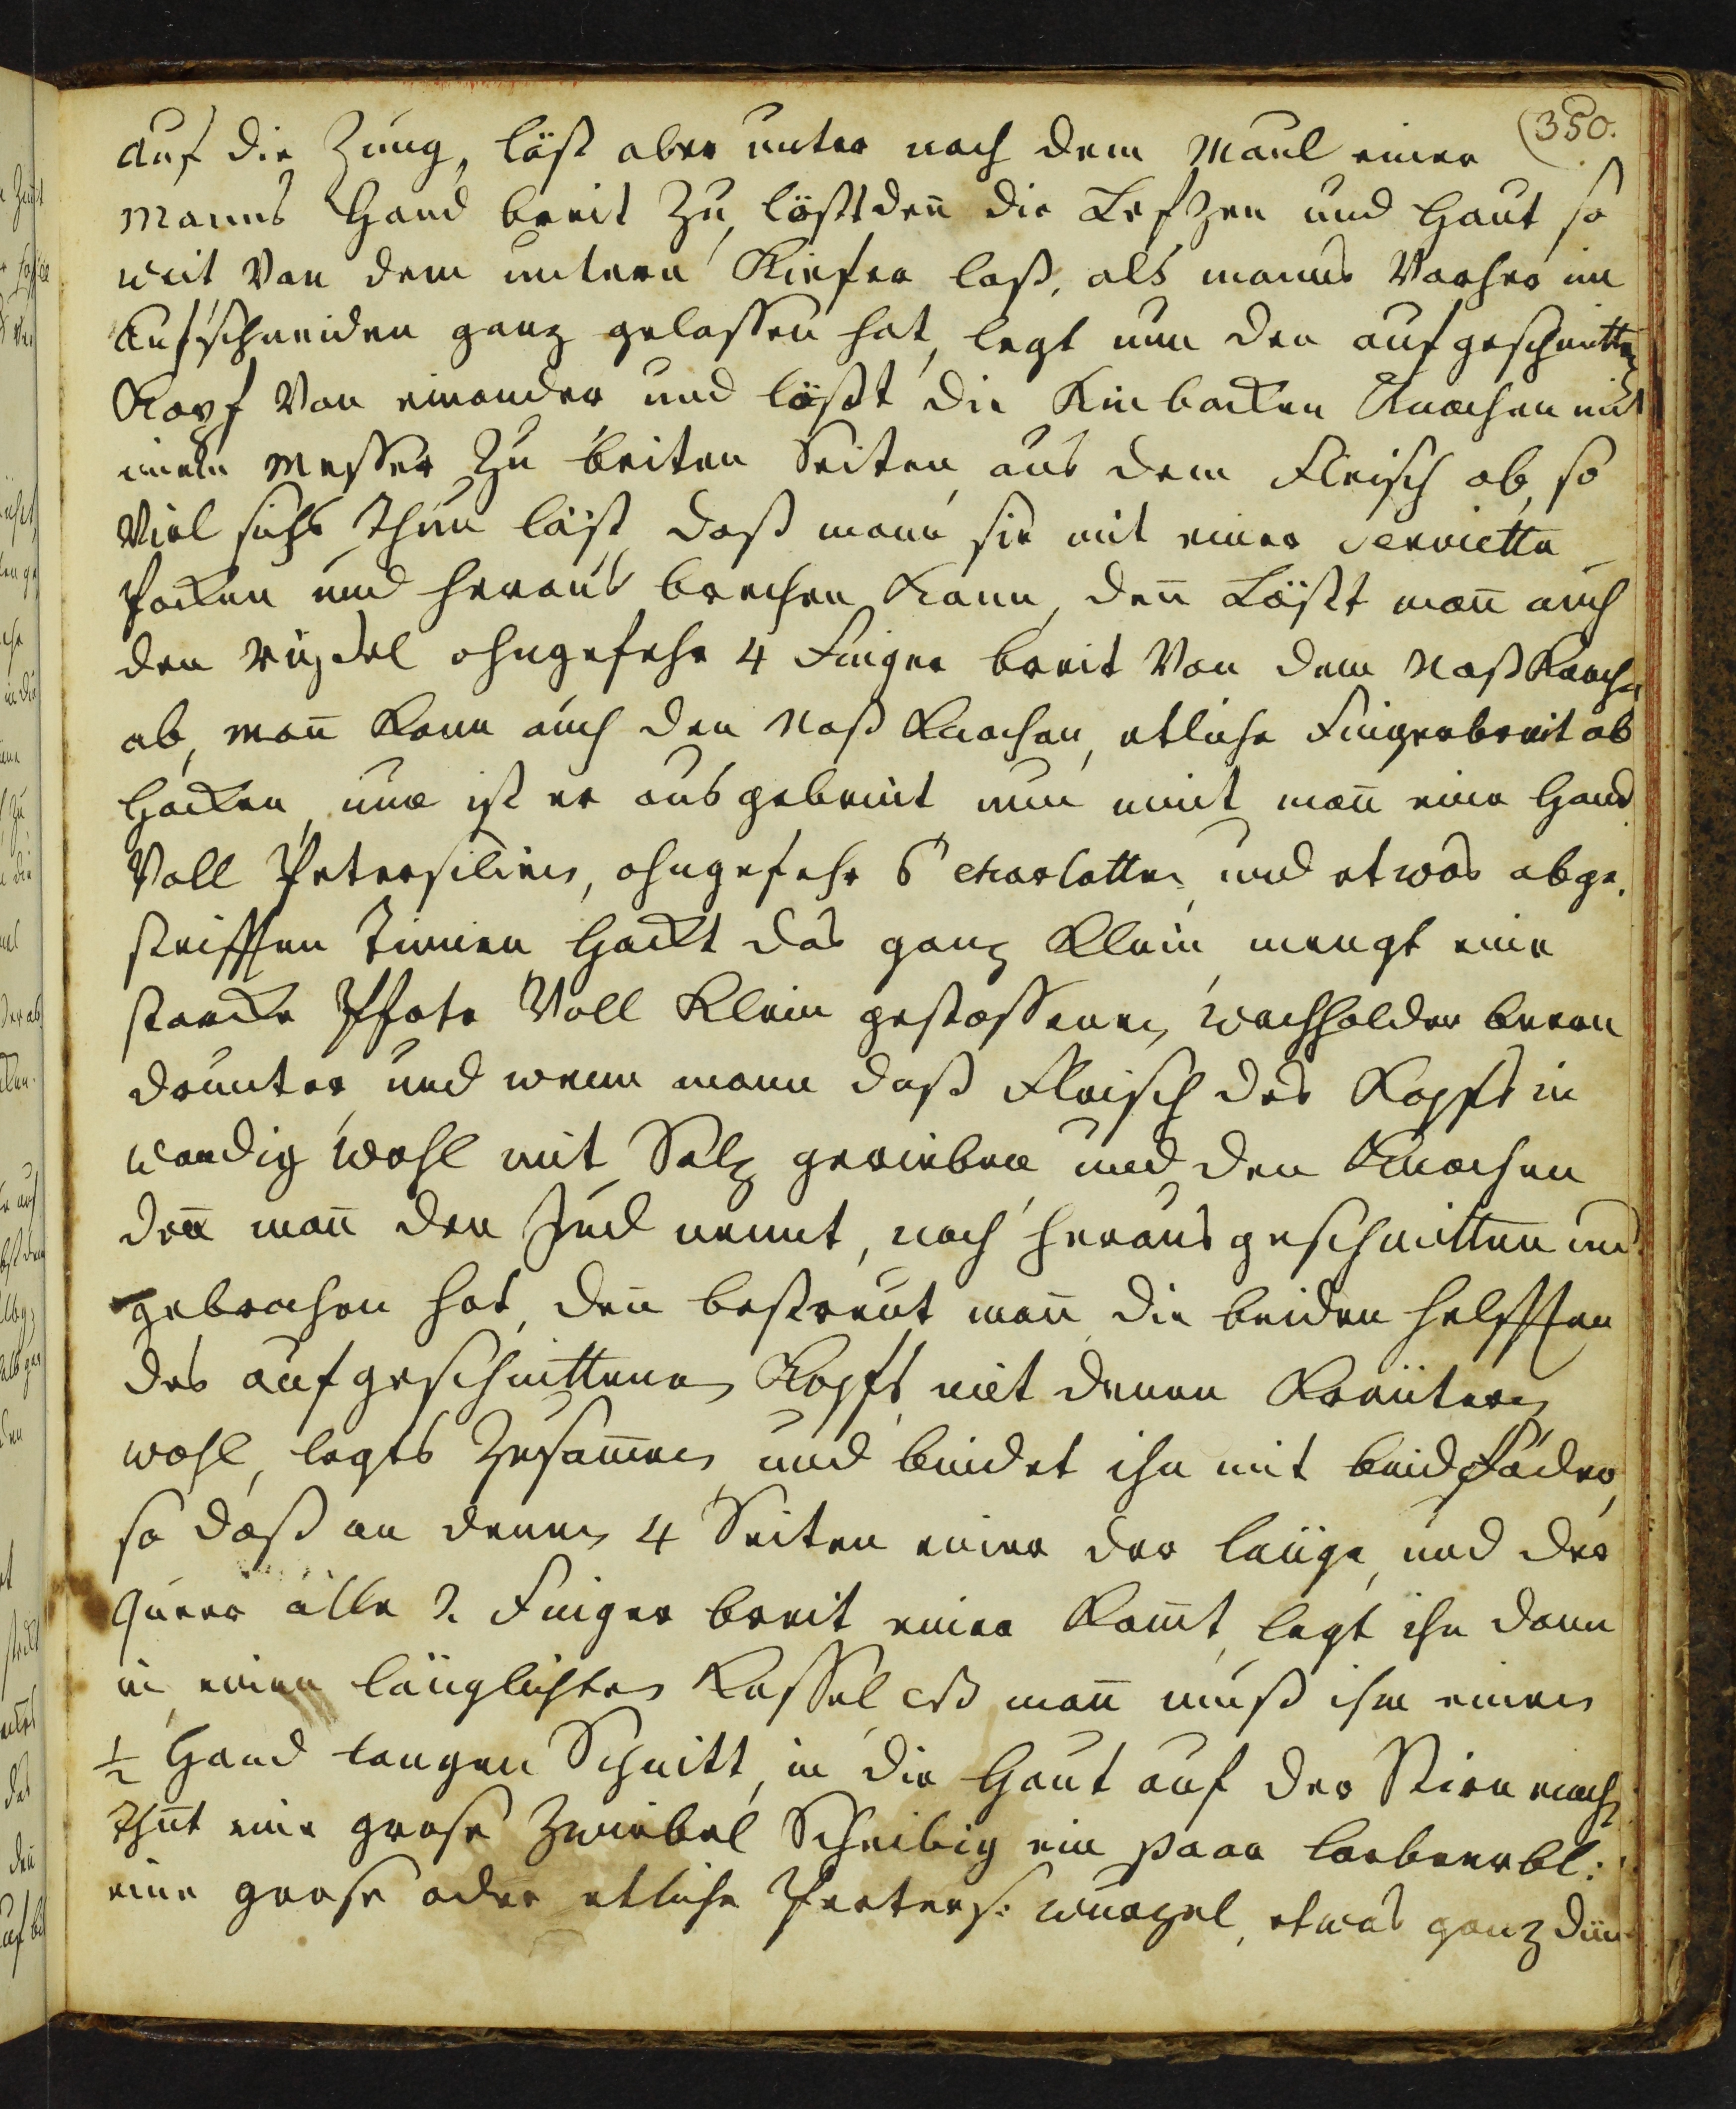 350.
auf die Zung, läst aber unter nach dem Maul einer
Manns Hand breit zu, lößt den̄ die Lefzen und Haut so
weit von dem untern Kiefer loß, als manns vorher im
Aufschneiden ganz gelassen hat, legt nun den aufgeschnitten
Kopf von einander und lößt die Kinbacken Knochen mit
einem Messer zu beiten Seiten aus dem Fleisch ab, so
viel sichs thun läst, daß mann sie mit einer Serviette
Packen und heraus brechen kann, den̄ Lößt man̄ auch
den Rüssel ohngefehr 4 Finger breit von dem Naß Knochn
ab, man̄ kann auch den Naß Knochen, etliche Fingerbreit ab
Hacken, nun ist er ausgebeint nun nimt man̄ eine Hand
voll Petersilien, ohngefehr 6 Charlotten und etwas abge-
streifften Timian Hackt das ganz klein mengt eine
starcke Pfote voll klein gestossenen Wachholder beeren
drunter und wenn mann daß Fleisch des Kopfs in
wendig wohl mit Salz gerieben und den Knochen
den̄ man̄ den Jud nennt, noch herausgeschnitten und
gebrochen hat, den̄ bestreut man̄ die beiden helfften
des aufgeschnittenen Kopfs mit denen Kräutern
wohl, legts zusam̄en und bindet ihn mit bindfäden,
so daß an denen 4 Seiten einer der länge, und der
quer alle 2. Finger breit einer kom̄t, legt ihn dann
in einen länglichten Kessel man̄ muß ihm einen
1/2 Hand langen Schnitt, in die Haut auf der Stirn mach
thut eine grose Zwiebel Scheibig ein paar lorbeerbl:
eine grose oder etliche Peters: wurzel, etwas ganz dün